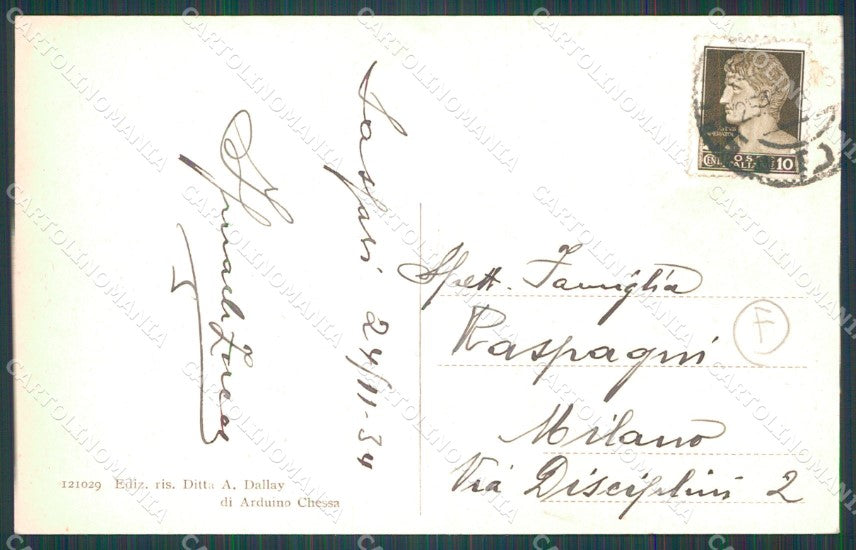 Sassari 24/11-34
Spett. Famiglia
Raspagni
Milano
Via Disciplini 2
F
10
CENT
10
121029 Ediz. ris. Ditta A. Dallay
di Arduino Chessa
CARTOLINOMANIA